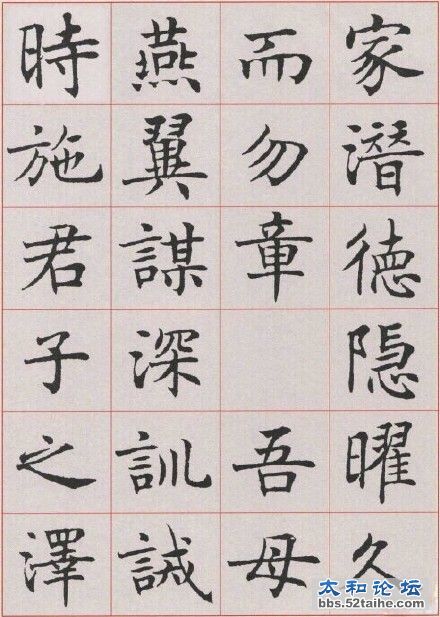 家潛德隱曜久
而勿章吾母
燕翼謀深訓誡
時施君子之澤
太和论坛
bbs.52taihe.com